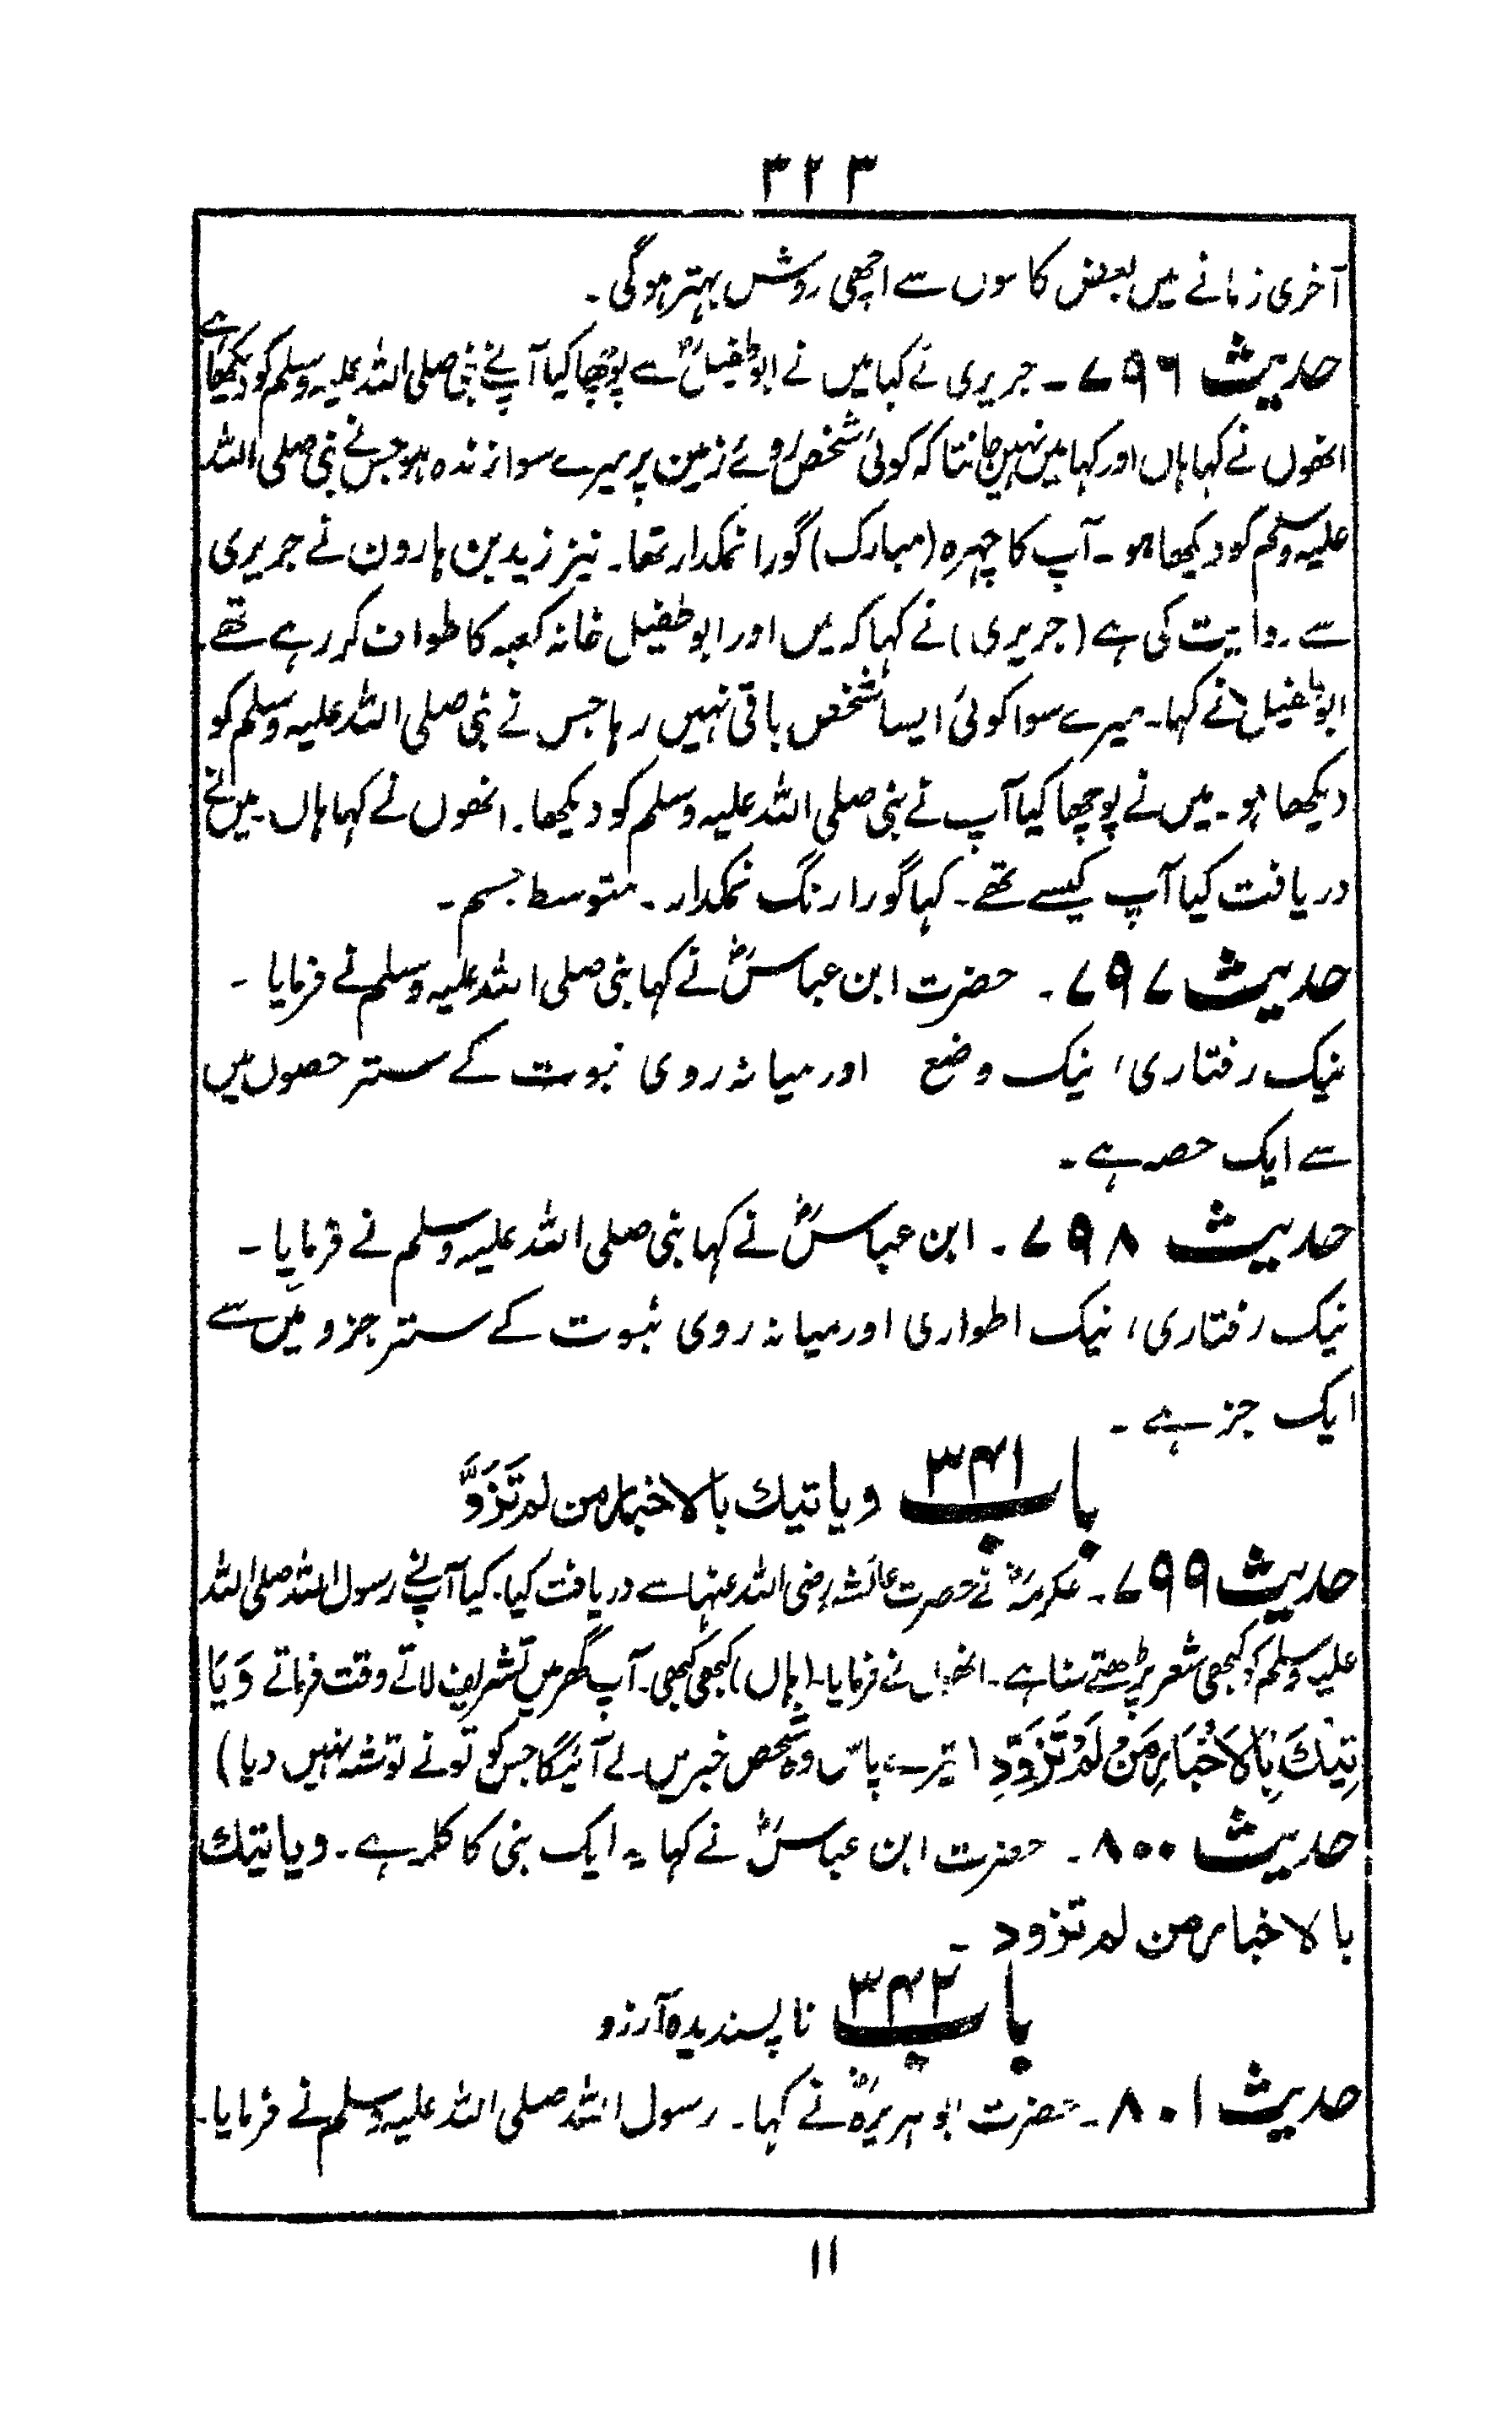 ۳۲۳
آخری زمانے میں بعض کاموں سے اچھی روش بہتر ہوگی۔
حدیث ۷۹۶۔ جریری نے کہا میں نے ابوطفیلؓ سے پوچھا کیا آپنے نبی صلی اللہ علیہ وسلم کو دیکھا ہے
انھوں نے کہا ہاں اور کہا میں نہیں جانتا کہ کوئی شخص روئے زمین پر میرے سوا زندہ ہو جس نے نبی صلی اللہ
علیہ وسلم کو دیکھا ہو۔ آپ کا چہرہ (مبارک) گورا نمکدار تھا۔ نیز زید بن ہارون نے جریری
سے روایت کی ہے (جریری) نے کہا کہ میں اور ابوطفیل خانہ کعبہ کا طواف کر رہے تھے۔
ابوطفیلؓ نے کہا۔ میرے سوا کوئی ایسا شخص باقی نہیں رہا جس نے نبی صلی اللہ علیہ وسلم کو
دیکھا ہو۔ میں نے پوچھا کیا آپ نے نبی صلی اللہ علیہ وسلم کو دیکھا۔ انھوں نے کہا ہاں۔ میں نے
دریافت کیا آپ کیسے تھے۔ کہا گورا رنگ نمکدار۔ متوسط جسم۔
حدیث ۷۹۷۔ حضرت ابن عباسؓ نے کہا نبی صلی اللہ علیہ وسلم نے فرمایا۔
نیک رفتاری، نیک وضع اور میانہ روی نبوت کے ستر حصوں میں
سے ایک حصہ ہے۔
حدیث ۷۹۸۔ ابن عباسؓ نے کہا نبی صلی اللہ علیہ وسلم نے فرمایا۔
نیک رفتاری، نیک اطواری اور میانہ روی نبوت کے ستر جزو میں سے
ایک جز ہے۔
باب ۳۴۱ ویاتیک بالاخبار من لم تَزَوَّ
حدیث ۷۹۹۔ عکرمہؓ نے حضرت عائشہ رضی اللہ عنہا سے دریافت کیا۔ کیا آپنے رسول اللہ صلی اللہ
علیہ وسلم کو کبھی شعر پڑھتے سنا ہے۔ انھوں نے فرمایا۔ (ہاں) کبھی کبھی۔ آپ گھر میں تشریف لاتے وقت فرماتے وَیَا
تِیْکَ بِالْاَخْبَارِ مَنْ لَمْ تَزَوَّدِ (تیرے پاس وہ شخص خبریں لے آئیگا جس کو تو نے توشہ نہیں دیا)
حدیث ۸۰۰۔ حضرت ابن عباسؓ نے کہا یہ ایک نبی کا کلمہ ہے۔ ویاتیک
بالاخبار من لم تزود۔
باب ۳۴۲ ناپسندیدہ آرزو
حدیث ۸۰۱۔ حضرت ابوہریرہؓ نے کہا۔ رسول اللہ صلی اللہ علیہ وسلم نے فرمایا۔
۱۱